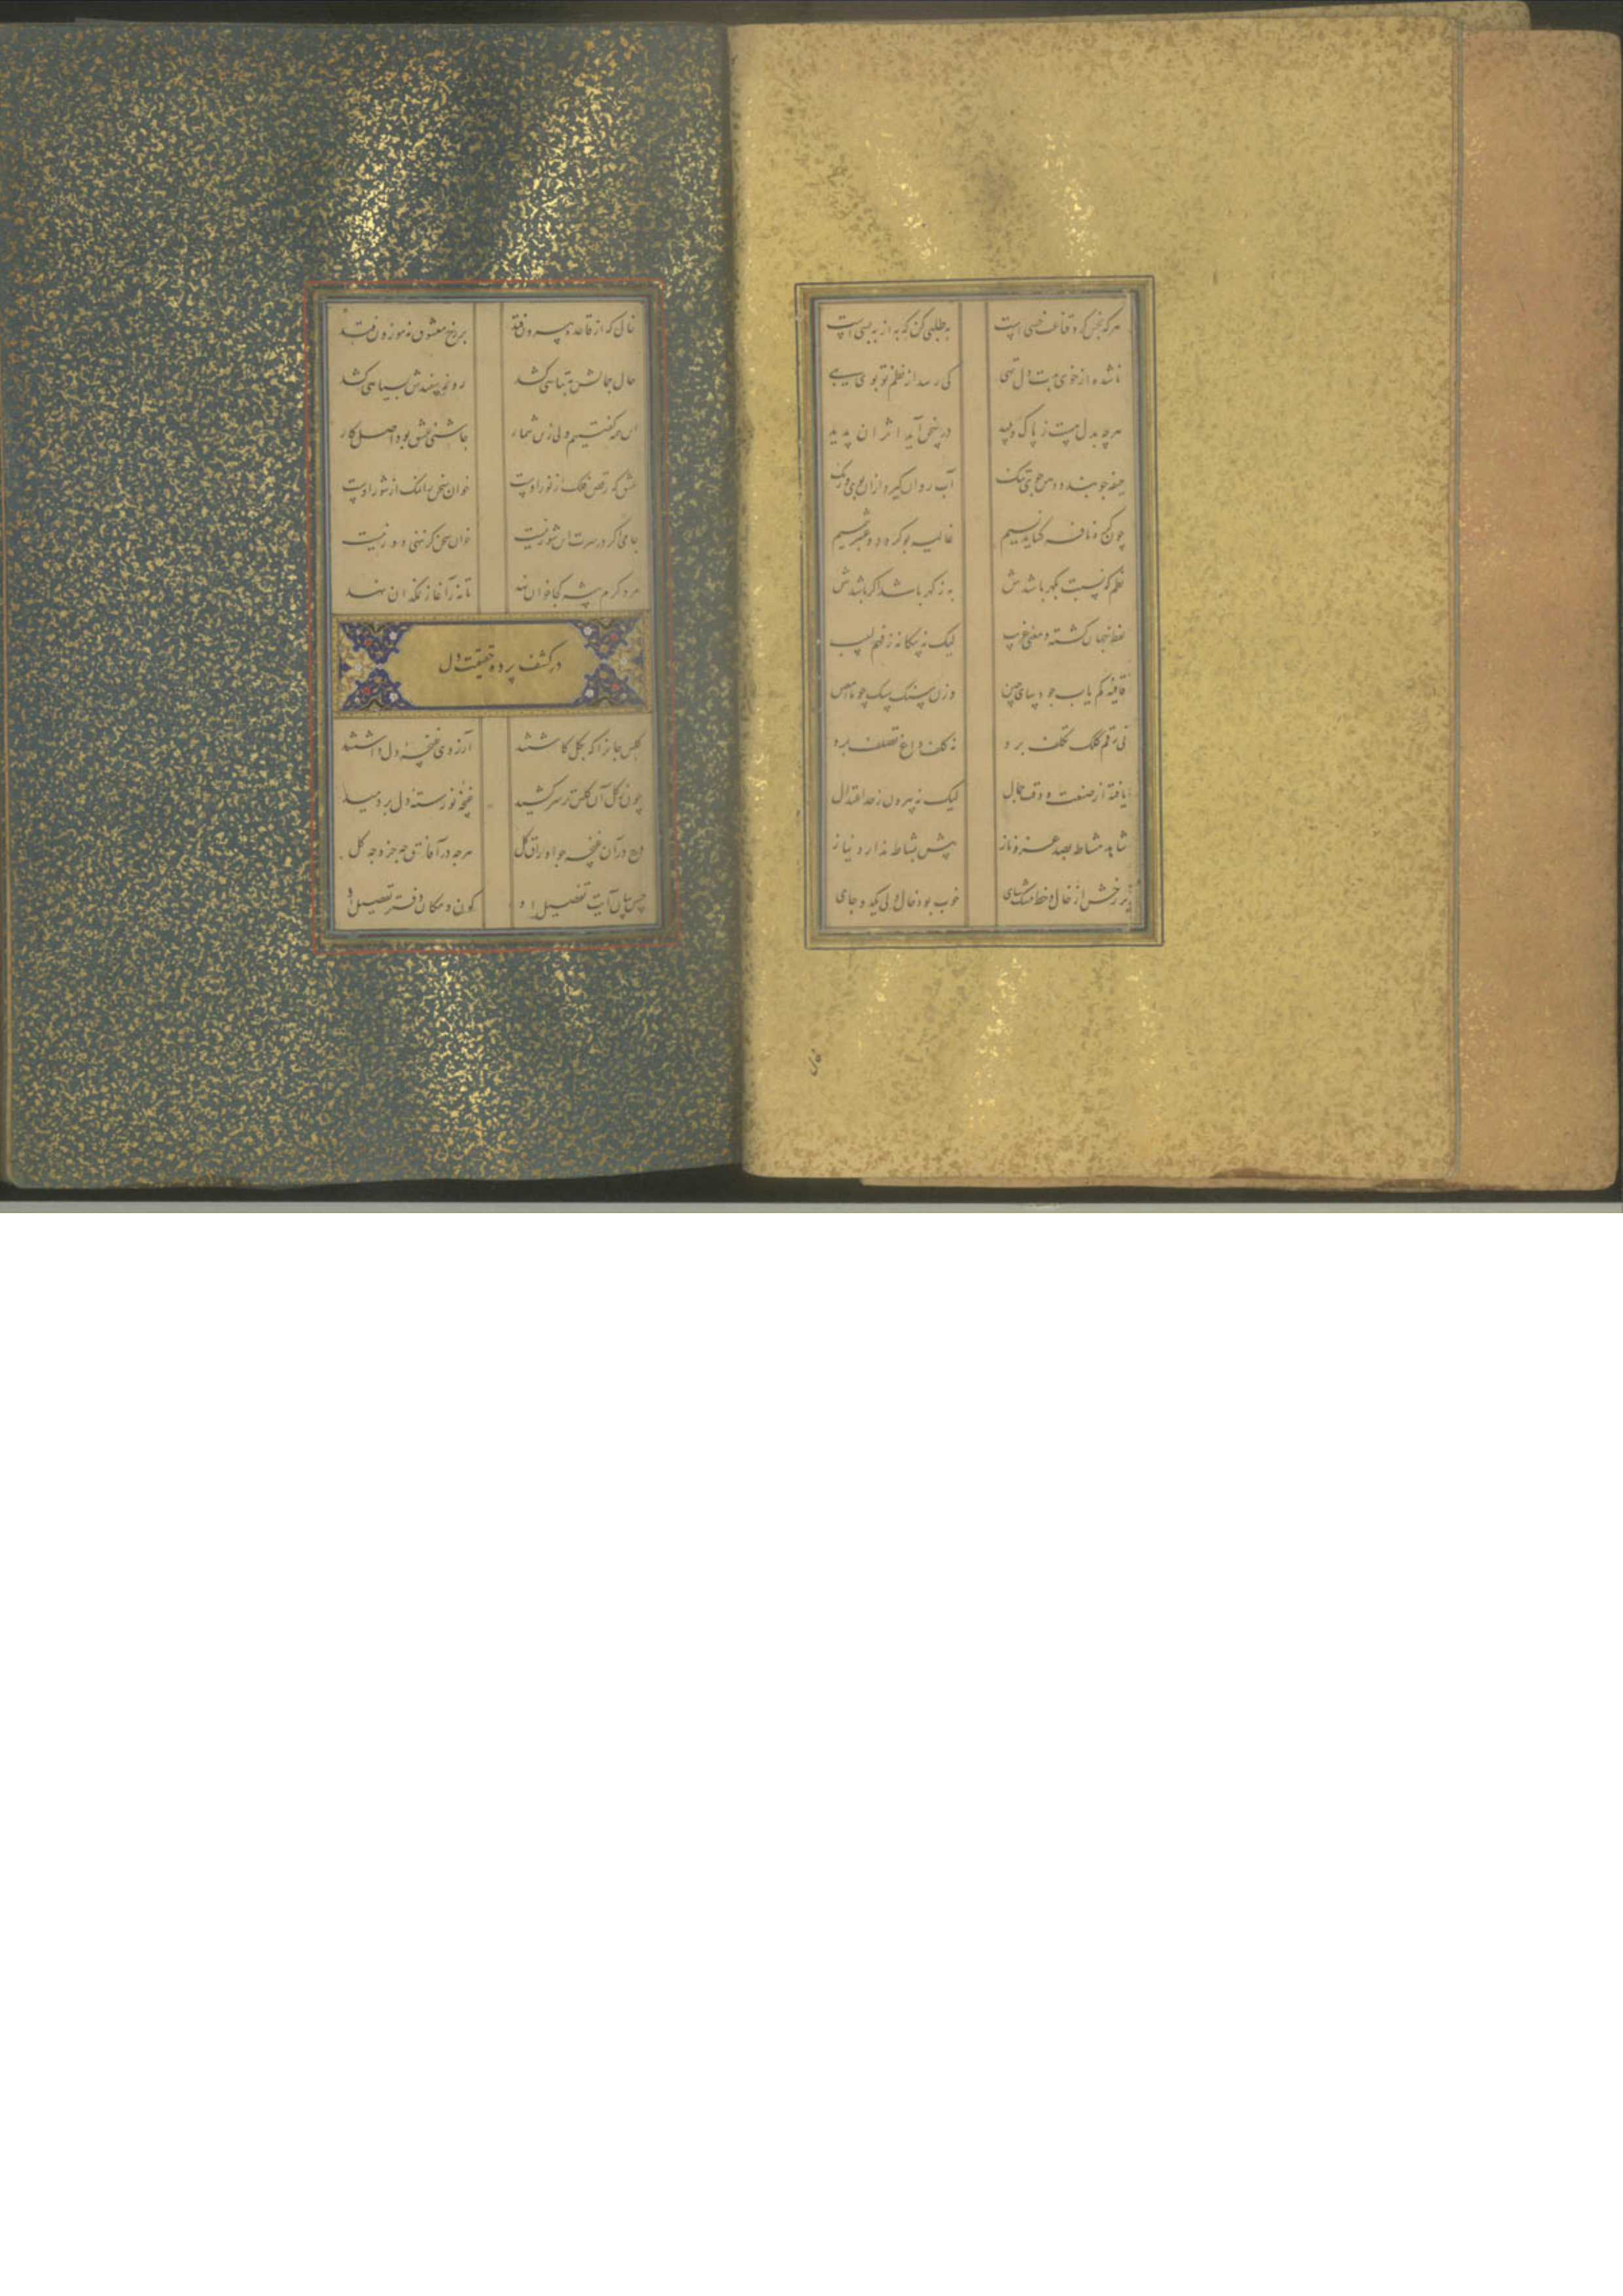 هر که بخس کرد قناعت خسی است به طلبی کن که به از به بسی است
ناشده از خوی بدت دل تهی کی رسد از نظم تو بوی بهی
هر چه بدل هست ز پاک و پلید در سخن آید اثر آن پدید
جیفه چو بندد ره جوی تنک آب روان گیرد ازان بوی و رنک
چون گره نافه گشاید نسیم غالیه بو گردد و عنبر شمیم
نظم که نسبت بگهر باشدش به ز گهر باشد اگر باشدش
لفظ جهان گشته و معنی غریب لیک نه بیگانه ز فهم لبیب
قافیه کم یاب چو دیبای چین وزن سبک
نی رقم کلک تکلف برو نه کلف داغ تصلف برو
یافته از صنعت و دقت جمال لیک نه بیرون ز حد اعتدال
شاهد بصد عز و ناز پیش ندارد نیاز
رخش از خال و خط مشک سای خوب بود خال ولی یک دو جای
خال
خال که از قاعده بیرون فتد بر رخ معشوق نه موزون فتد
حال جمالش به تباهی کشد روی سپیدش بسیاهی کشد
این همه گفتیم ولی زین شمار چاشنی عشق بود اصل کار
عشق که رقص فلک از نور اوست خوان سخن را نمک از شور اوست
جامی اگر در سرت این شور نیست خوان سخن گر ننهی دور نیست
مرد کرم پیشه کجا خوان نهد تا نه ز آغاز نمکدان نهد
در کشف پرده حقیقت دل
گلبن جانرا که بگل کاشتند آرزوی غنچه دل داشتند
چون ز گل آن گلبن تر سر کشید غنچه نورسته دل بر دمید
درج در آن غنچه چو اوراق گل هر چه در آفاق چه جزو و چه کل
آیت تفصیل او کون و مکان دفتر تفصیل او